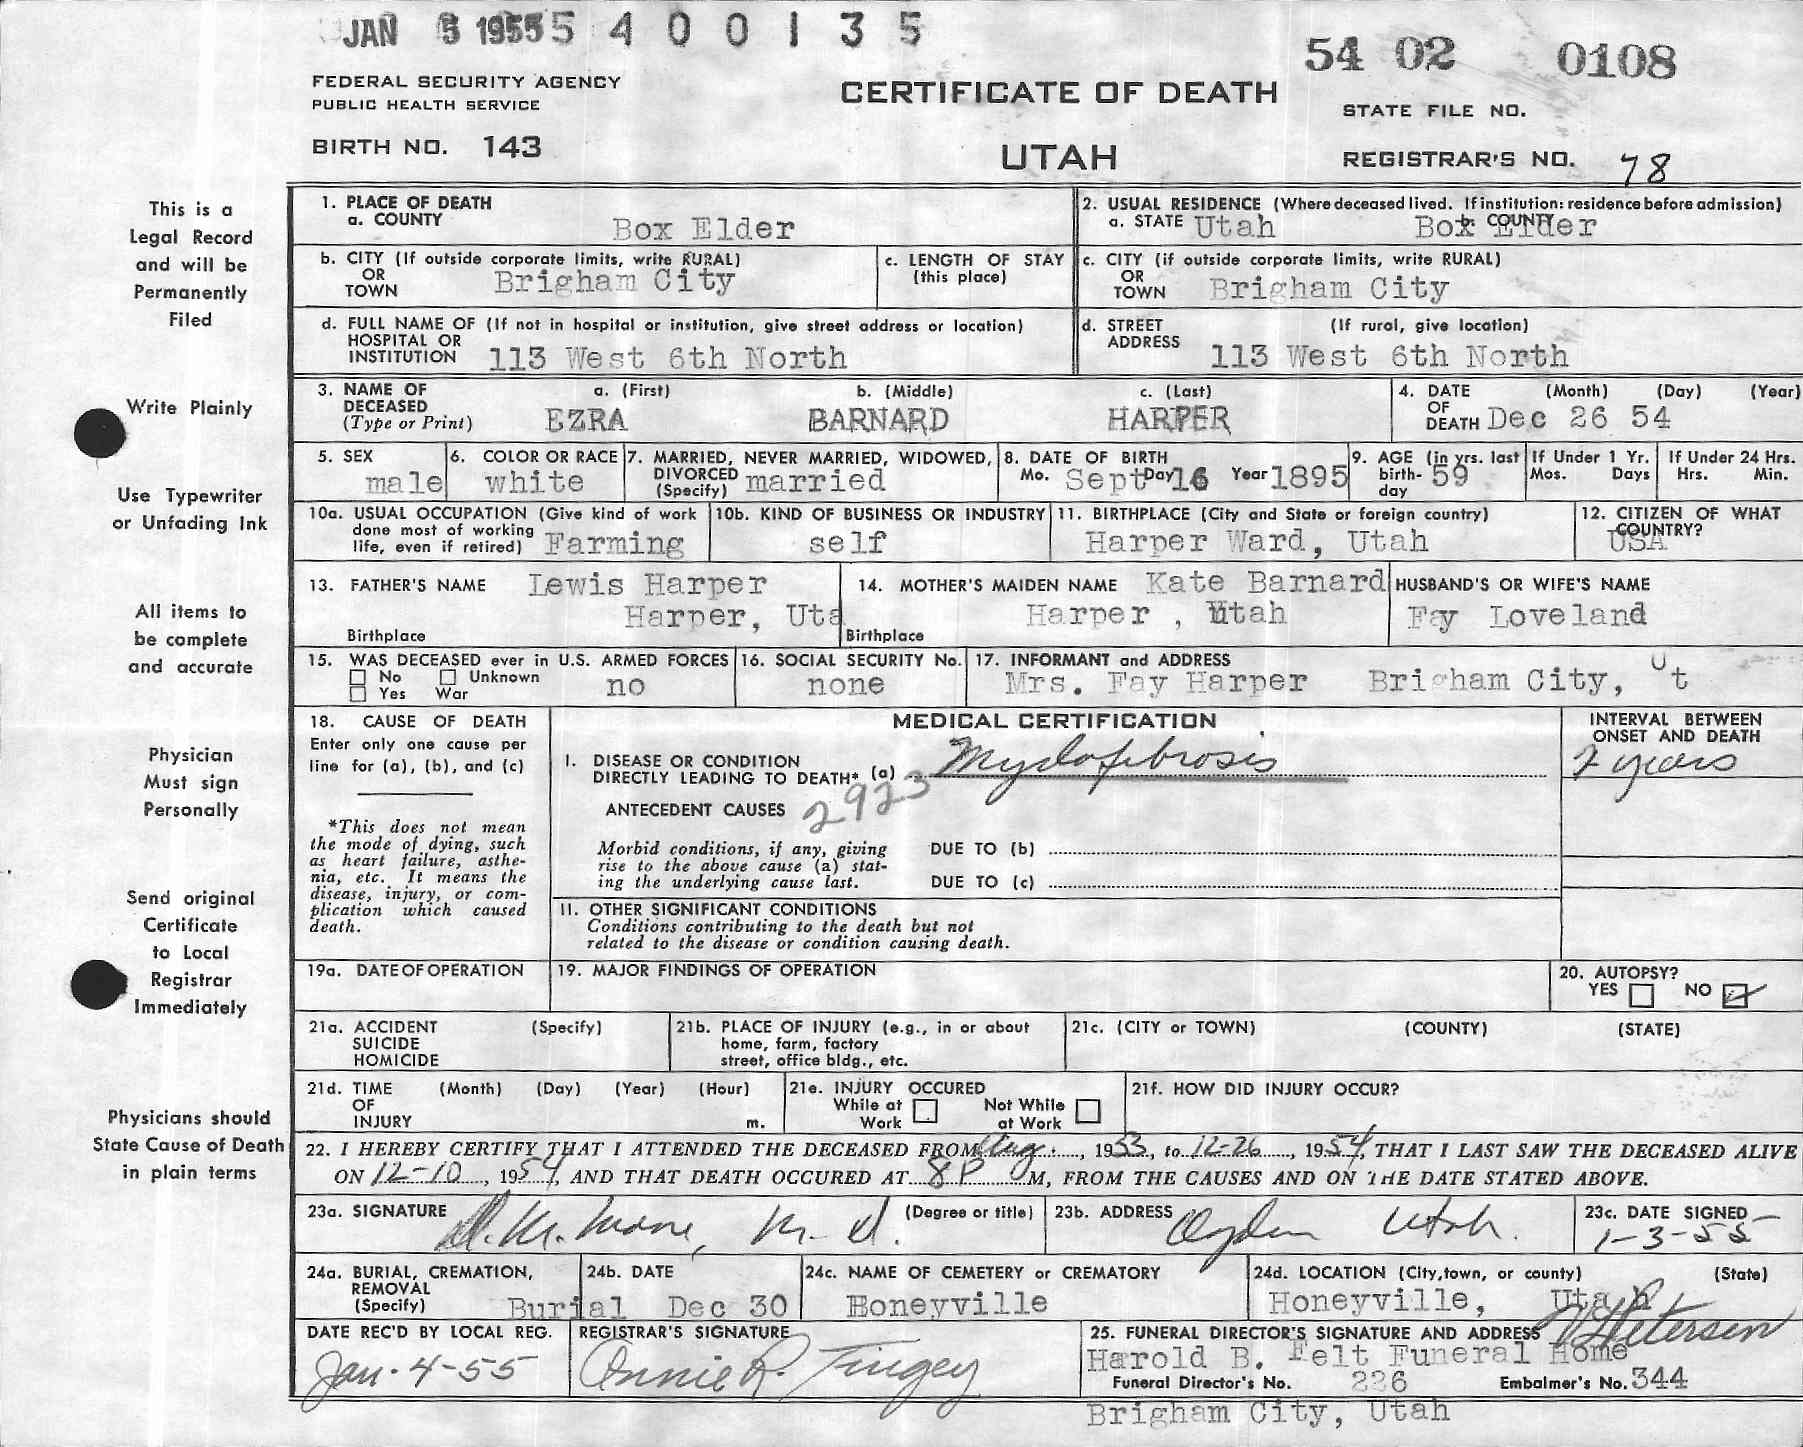 JAN 5 1955 5 4 0 0 1 3 5
54 02 0108
FEDERAL SECURITY AGENCY
PUBLIC HEALTH SERVICE
BIRTH NO. 143
CERTIFICATE OF DEATH
UTAH
STATE FILE NO.
REGISTRAR'S NO. 78
This is a
Legal Record
and will be
Permanently
Filed
Write Plainly
Use Typewriter
or Unfading Ink
All items to
be complete
and accurate
Physician
Must sign
Personally
Send original
Certificate
to Local
Registrar
Immediately
Physicians should
State Cause of Death
in plain terms
1. PLACE OF DEATH
a. COUNTY Box Elder
2. USUAL RESIDENCE (Where deceased lived. If institution: residence before admission)
a. STATE Utah b. COUNTY Box Elder
b. CITY (If outside corporate limits, write RURAL)
OR
TOWN Brigham City
c. LENGTH OF STAY
(this place)
c. CITY (if outside corporate limits, write RURAL)
OR
TOWN Brigham City
d. FULL NAME OF (If not in hospital or institution, give street address or location)
HOSPITAL OR
INSTITUTION 113 West 6th North
d. STREET (If rural, give location)
ADDRESS
113 West 6th North
3. NAME OF a. (First) b. (Middle) c. (Last)
DECEASED
(Type or Print) EZRA BARNARD HARPER
4. DATE (Month) (Day) (Year)
OF
DEATH Dec 26 54
5. SEX
male
6. COLOR OR RACE
white
7. MARRIED, NEVER MARRIED, WIDOWED,
DIVORCED
(Specify) married
8. DATE OF BIRTH
Mo. Sept Day 16 Year 1895
9. AGE (in yrs. last
birth- 59
day
If Under 1 Yr.
Mos. Days
If Under 24 Hrs.
Hrs. Min.
10a. USUAL OCCUPATION (Give kind of work
done most of working
life, even if retired) Farming
10b. KIND OF BUSINESS OR INDUSTRY
self
11. BIRTHPLACE (City and State or foreign country)
Harper Ward, Utah
12. CITIZEN OF WHAT
COUNTRY?
USA
13. FATHER'S NAME Lewis Harper
Harper, Uta
Birthplace
14. MOTHER'S MAIDEN NAME Kate Barnard
Harper , Utah
Birthplace
HUSBAND'S OR WIFE'S NAME
Fay Loveland
15. WAS DECEASED ever in U.S. ARMED FORCES
No Unknown
Yes War no
16. SOCIAL SECURITY No.
none
17. INFORMANT and ADDRESS
Mrs. Fay Harper Brigham City, Ut
18. CAUSE OF DEATH
Enter only one cause per
line for (a), (b), and (c)
*This does not mean
the mode of dying, such
as heart failure, asthe-
nia, etc. It means the
disease, injury, or com-
plication which caused
death.
MEDICAL CERTIFICATION
I. DISEASE OR CONDITION
DIRECTLY LEADING TO DEATH* (a) Myelofibrosis
INTERVAL BETWEEN
ONSET AND DEATH
2 years
ANTECEDENT CAUSES 2923
Morbid conditions, if any, giving
rise to the above cause (a) stat-
ing the underlying cause last.
DUE TO (b)
DUE TO (c)
II. OTHER SIGNIFICANT CONDITIONS
Conditions contributing to the death but not
related to the disease or condition causing death.
19a. DATE OF OPERATION
19. MAJOR FINDINGS OF OPERATION
20. AUTOPSY?
YES NO
21a. ACCIDENT (Specify)
SUICIDE
HOMICIDE
21b. PLACE OF INJURY (e.g., in or about
home, farm, factory
street, office bldg., etc.
21c. (CITY or TOWN) (COUNTY) (STATE)
21d. TIME (Month) (Day) (Year) (Hour)
OF
INJURY m.
21e. INJURY OCCURED
While at Not While
Work at Work
21f. HOW DID INJURY OCCUR?
22. I HEREBY CERTIFY THAT I ATTENDED THE DECEASED FROM Aug., 1953, to 12-26, 1954, THAT I LAST SAW THE DECEASED ALIVE
ON 12-10, 1954, AND THAT DEATH OCCURED AT 8 P M, FROM THE CAUSES AND ON THE DATE STATED ABOVE.
23a. SIGNATURE (Degree or title)
M. D.
23b. ADDRESS
Ogden Utah.
23c. DATE SIGNED
1-3-55
24a. BURIAL, CREMATION,
REMOVAL
(Specify) Burial
24b. DATE
Dec 30
24c. NAME OF CEMETERY or CREMATORY
Honeyville
24d. LOCATION (City, town, or county) (State)
Honeyville, Utah
DATE REC'D BY LOCAL REG.
Jan. 4-55
REGISTRAR'S SIGNATURE
Annie R. Tingey
25. FUNERAL DIRECTOR'S SIGNATURE AND ADDRESS Petersen
Harold B. Felt Funeral Home
Funeral Director's No. 226 Embalmer's No. 344
Brigham City, Utah